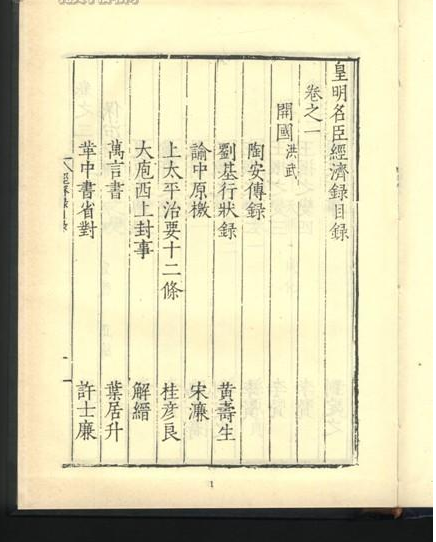 皇明名臣經濟錄目錄
卷之一
開國 洪武
陶安傳錄
劉基行狀錄 黃壽生
諭中原檄 宋濂
上太平治要十二條 桂彥良
大庖西上封事 解縉
萬言書 葉居升
革中書省對 許士廉
1